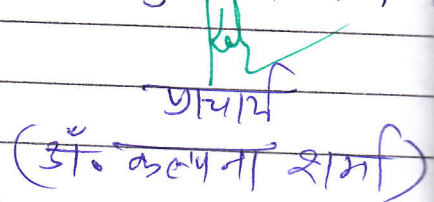 प्राचार्य
(डॉ. कल्पना शर्मा)